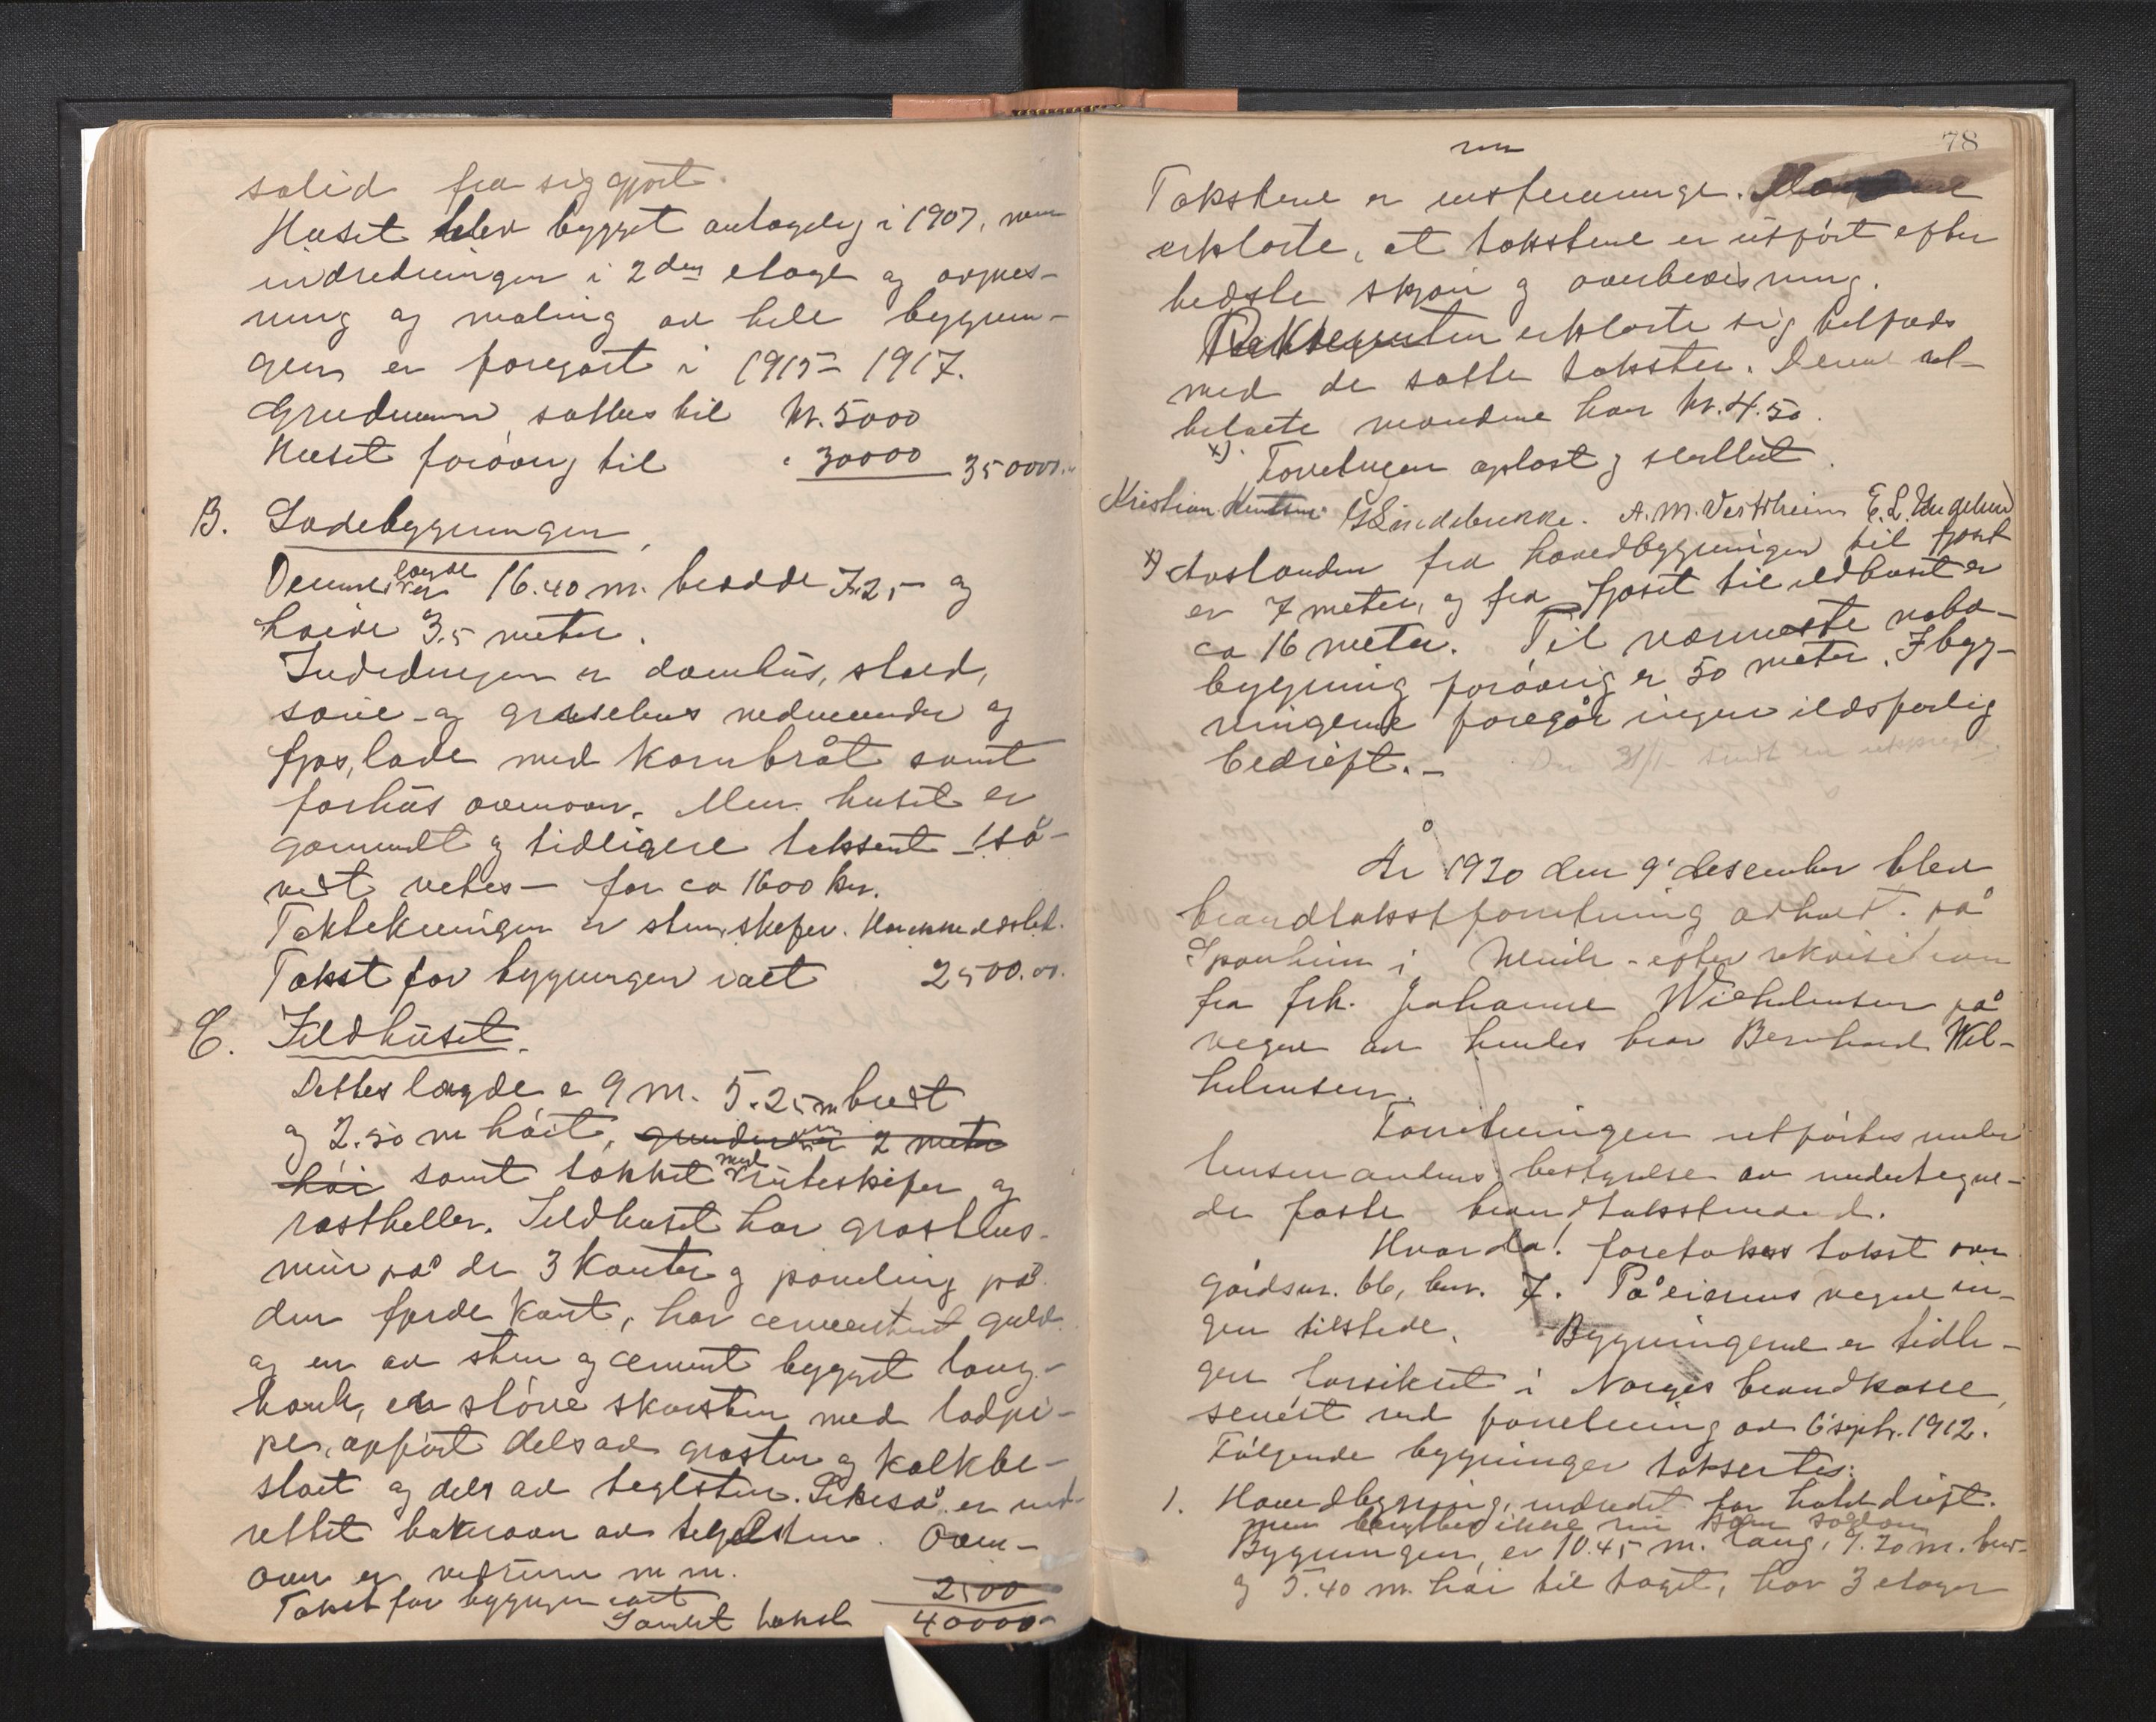 solid fra sig gjort.
Huset blev bygget antagelig i 1907, men
indredningen i 2den etage og avpus-
ning og maling av hele bygnin-
gen er foregåt i 1915-1917.
Grudmuren sattes til kr. 5000
Huset forövrig til " 30000 35000
B. Ladebygningen.
Dennes længde er 16.40 m. bredde 7.2,- og
høide 3.5 meter.
Indredningen er damhus, stald,
souie- og grisehus nedenunder og
fjos, lade med kornbråt samt
forhus ovenover. Men huset er
gammelt og tidligere taksert - så-
vidt vites - for ca 1600 kr.
Taktekningen er sten, skifer. Har ikke ildsted.
Takst for bygningen ialt 2500.00.
C. Ildhuset.
Dettes længde er 9 m. 5.25 m bredt
og 2.50 m höit, grunden er 2 meter
höi samt tækket med ruteskifer og
rastheller. Ildhuset har grastens-
mur på de 3 kanter og paneling på
den fjerde kant, har cementert gulv
og en av sten og cement bygget
en störe skorsten med
opfört dels av grasten og kalkbe-
slaet og dels av teglsten. er ind-
rettet bakerovn av teglsten. Oven-
over er vedrum m m.
Takst for bygngen ialt 2500
Samlet takst 40000-
78
Takstene er enstemmige.
erklærte, at takstene er utfört efter
bedste skjön og overbevisning.
Rekvirenten erklærte sig tilfreds
med de satte takster. Denne ut-
betalte mændene hver kr. 4.50.
x). Forretningen oplæst og sluttet.
Kristian Knutsen. A. M. Vestrheim E. L.
x) Avstanden fra hovedbygningen til fjoset
er 7 meter, og fra fjoset til ildhuset er
ca 16 meter. Til nærmeste nabo-
bygning forövrig er 50 meter. I byg-
ningene foregår ingen ildsfarlig
bedrift.-
Den 31/1 sendt en utskrift.
År 1920 den 9' desember blev
brandtakstforretning avholdt på
Sponheim i Ulvik - efter rekvisition
fra frk. Johanne Wilhelmsen på
vegne av hendes bror Bernhard Wil-
helmsen.
Forretningen utförtes under
lensmandens bestyrelse av undertegne-
de faste brandtakstmænd.
Hvorda! foretokes takst over
gårdsnr. 66, bnr. 7. På eierens vegne in-
gen tilstede. Bygningene er tidli-
gere forsikret i Norges brandkasse,
senest ved forretning av 6 septr. 1912.
Fölgende bygninger taksertes:
1. Hovedbygning, indredet for hoteldrift.
men benyttes ikke nu som sådan
Bygningen er 10.45 m. lang, 9.20 m. bred
og 5.40 m. höi til taget, har 3 etager